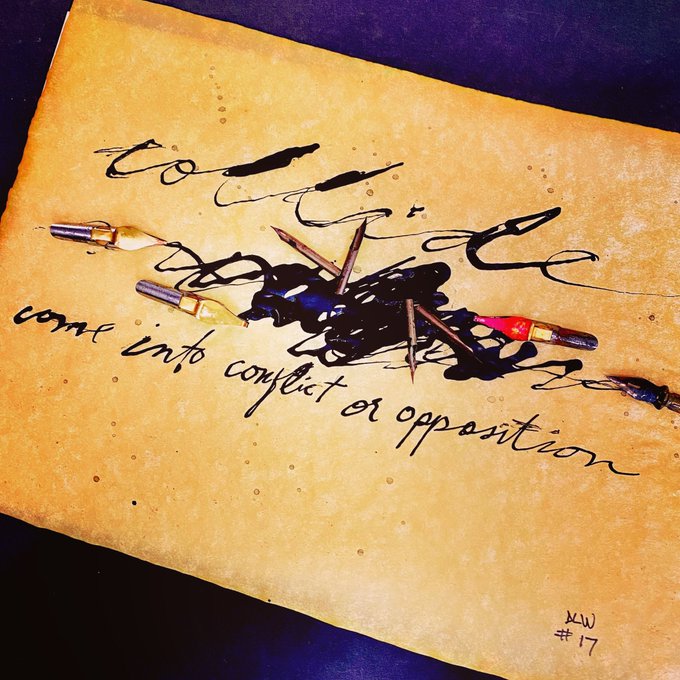 collide
come into conflict or opposition
DLW
#17